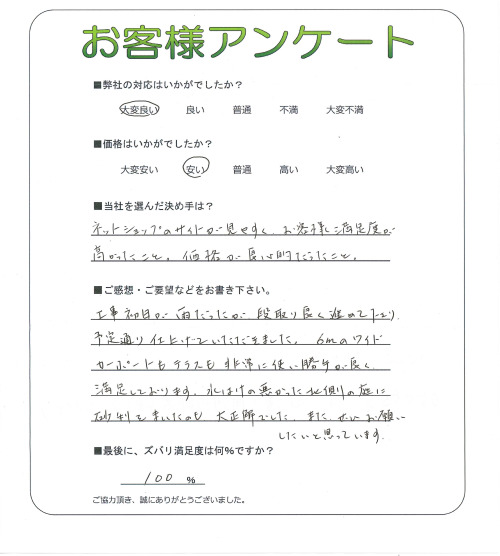 お客様アンケート
■弊社の対応はいかがでしたか?
大変良い 良い 普通 不満 大変不満
■価格はいかがでしたか?
大変安い 安い 普通 高い 大変高い
■当社を選んだ決め手は?
ネットショップのサイトが見やすく、お客様満足度が
高かったこと。価格が良心的だったこと。
■ご感想・ご要望などをお書き下さい。
工事初日が雨だったが、段取り良く進めて
予定通り仕上げていただきました。6mのワイド
カーポートもテラスも非常に使い勝手が良く
満足しております。水はけの悪かった北側の庭に
砂利をまいたのも大正解でした。また、ぜひお願い
したいと思っています。
■最後に、ズバリ満足度は何%ですか?
100 %
ご協力頂き、誠にありがとうございました。